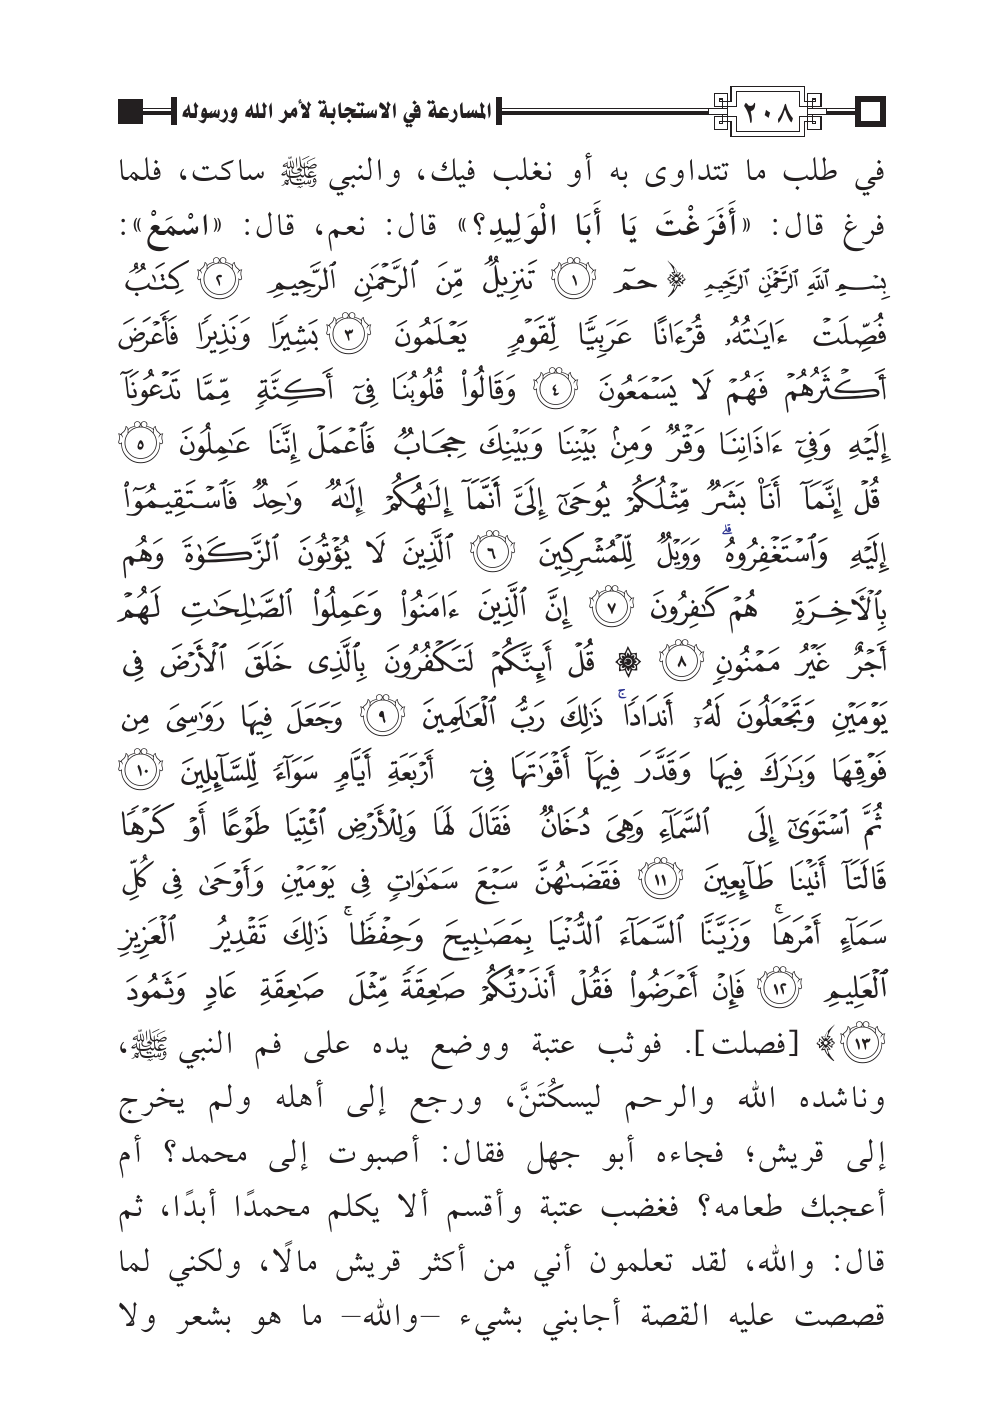 المسارعة في الاستجابة لأمر الله ورسوله ٢٠٨
في طلب ما تتداوى به أو نغلب فيك، والنبي ﷺ ساكت، فلما
فرغ قال: «أَفَرَغْتَ يَا أَبَا الْوَلِيدِ؟» قال: نعم، قال: «اسْمَعْ»:
بِسْمِ ٱللَّهِ ٱلرَّحْمَٰنِ ٱلرَّحِيمِ ﴿حمٓ ١ تَنزِيلٌ مِّنَ ٱلرَّحْمَٰنِ ٱلرَّحِيمِ ٢ كِتَٰبٌ
فُصِّلَتْ ءَايَٰتُهُۥ قُرْءَانًا عَرَبِيًّا لِّقَوْمٍ يَعْلَمُونَ ٣ بَشِيرًا وَنَذِيرًا فَأَعْرَضَ
أَكْثَرُهُمْ فَهُمْ لَا يَسْمَعُونَ ٤ وَقَالُوا۟ قُلُوبُنَا فِىٓ أَكِنَّةٍ مِّمَّا تَدْعُونَآ
إِلَيْهِ وَفِىٓ ءَاذَانِنَا وَقْرٌ وَمِنۢ بَيْنِنَا وَبَيْنِكَ حِجَابٌ فَٱعْمَلْ إِنَّنَا عَٰمِلُونَ ٥
قُلْ إِنَّمَآ أَنَا۠ بَشَرٌ مِّثْلُكُمْ يُوحَىٰٓ إِلَىَّ أَنَّمَآ إِلَٰهُكُمْ إِلَٰهٌ وَٰحِدٌ فَٱسْتَقِيمُوٓا۟
إِلَيْهِ وَٱسْتَغْفِرُوهُ ۗ وَوَيْلٌ لِّلْمُشْرِكِينَ ٦ ٱلَّذِينَ لَا يُؤْتُونَ ٱلزَّكَوٰةَ وَهُم
بِٱلْـَٔاخِرَةِ هُمْ كَٰفِرُونَ ٧ إِنَّ ٱلَّذِينَ ءَامَنُوا۟ وَعَمِلُوا۟ ٱلصَّٰلِحَٰتِ لَهُمْ
أَجْرٌ غَيْرُ مَمْنُونٍ ٨ ۞ قُلْ أَئِنَّكُمْ لَتَكْفُرُونَ بِٱلَّذِى خَلَقَ ٱلْأَرْضَ فِى
يَوْمَيْنِ وَتَجْعَلُونَ لَهُۥٓ أَندَادًا ۚ ذَٰلِكَ رَبُّ ٱلْعَٰلَمِينَ ٩ وَجَعَلَ فِيهَا رَوَٰسِىَ مِن
فَوْقِهَا وَبَٰرَكَ فِيهَا وَقَدَّرَ فِيهَآ أَقْوَٰتَهَا فِىٓ أَرْبَعَةِ أَيَّامٍ سَوَآءً لِّلسَّآئِلِينَ ١٠
ثُمَّ ٱسْتَوَىٰٓ إِلَى ٱلسَّمَآءِ وَهِىَ دُخَانٌ فَقَالَ لَهَا وَلِلْأَرْضِ ٱئْتِيَا طَوْعًا أَوْ كَرْهًا
قَالَتَآ أَتَيْنَا طَآئِعِينَ ١١ فَقَضَىٰهُنَّ سَبْعَ سَمَٰوَاتٍ فِى يَوْمَيْنِ وَأَوْحَىٰ فِى كُلِّ
سَمَآءٍ أَمْرَهَا ۚ وَزَيَّنَّا ٱلسَّمَآءَ ٱلدُّنْيَا بِمَصَٰبِيحَ وَحِفْظًا ۚ ذَٰلِكَ تَقْدِيرُ ٱلْعَزِيزِ
ٱلْعَلِيمِ ١٢ فَإِنْ أَعْرَضُوا۟ فَقُلْ أَنذَرْتُكُمْ صَٰعِقَةً مِّثْلَ صَٰعِقَةِ عَادٍ وَثَمُودَ
١٣﴾ [فصلت]. فوثب عتبة ووضع يده على فم النبي ﷺ،
وناشده الله والرحم ليسكُتَنَّ، ورجع إلى أهله ولم يخرج
إلى قريش؛ فجاءه أبو جهل فقال: أصبوت إلى محمد؟ أم
أعجبك طعامه؟ فغضب عتبة وأقسم ألا يكلم محمدًا أبدًا، ثم
قال: والله، لقد تعلمون أني من أكثر قريش مالًا، ولكني لما
قصصت عليه القصة أجابني بشيء –والله– ما هو بشعر ولا